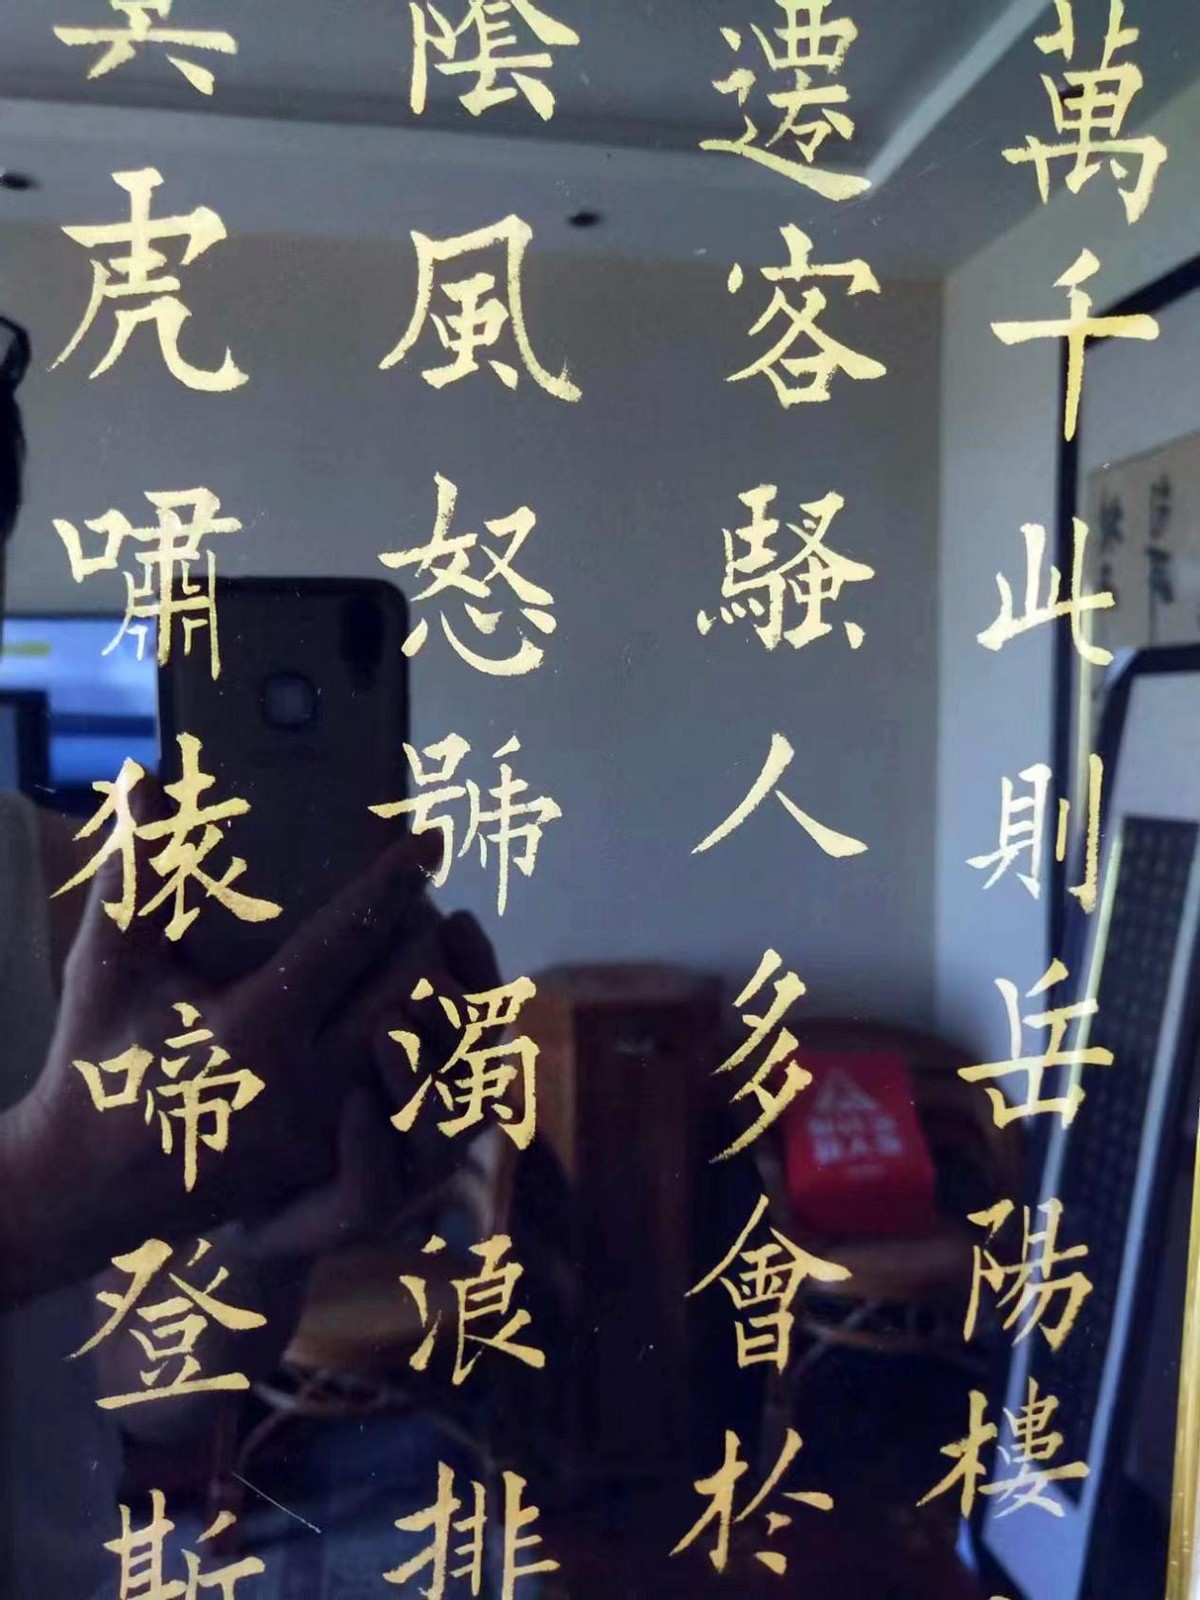 萬千此則岳陽樓
遷客騷人多會於
陰風怒號濁浪排
冥虎嘯猿啼登斯